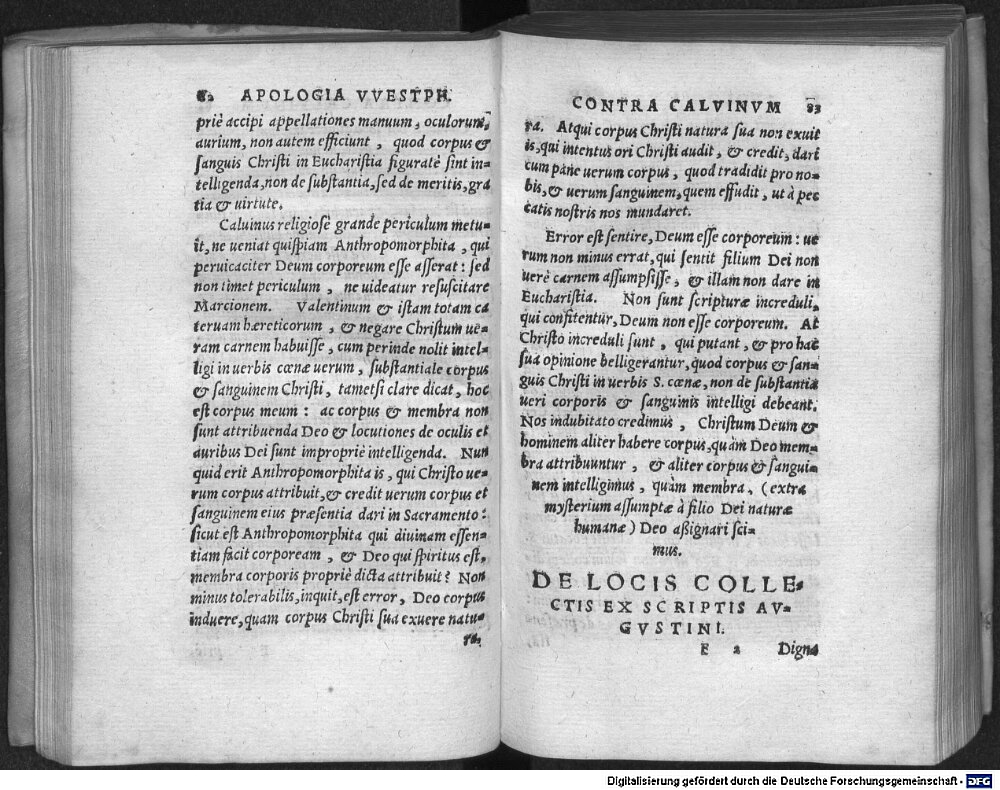 82 APOLOGIA VVESTPH.
priè accipi appellationes manuum, oculorum,
aurium, non autem efficiunt, quod corpus &
sanguis Christi in Eucharistia figuratè sint in-
telligenda, non de substantia, sed de meritis, gra
tia & uirtute.
Caluinus religiosè grande periculum metu-
it, ne ueniat quispiam Anthropomorphita, qui
peruicaciter Deum corporeum esse asserat: sed
non timet periculum, ne uideatur resuscitare
Marcionem. Valentinum & istam totam ca
teruam hæreticorum, & negare Christum ue-
ram carnem habuisse, cum perinde nolit intel-
ligi in uerbis cœnæ uerum, substantiale corpus
& sanguinem Christi, tametsi clare dicat, hoc
est corpus meum: ac corpus & membra non
sunt attribuenda Deo & locutiones de oculis et
auribus Dei sunt impropriè intelligenda. Nun
quid erit Anthropomorphita is, qui Christo ue-
rum corpus attribuit, & credit uerum corpus et
sanguinem eius præsentia dari in Sacramento:
sicut est Anthropomorphita qui diuinam essen-
tiam facit corpoream, & Deo qui spiritus est,
membra corporis propriè dicta attribuit? Non
minus tolerabilis, inquit, est error, Deo corpus
induere, quam corpus Christi sua exuere natu-
ra.
CONTRA CALVINVM 83
ra. Atqui corpus Christi natura sua non exuit
is, qui intentus ori Christi audit, & credit, dari
cum pane uerum corpus, quod tradidit pro no-
bis, & uerum sanguinem, quem effudit, ut à pec
catis nostris nos mundaret.
Error est sentire, Deum esse corporeum: ue
rum non minus errat, qui sentit filium Dei non
uerè carnem assumpsisse, & illam non dare in
Eucharistia. Non sunt scripturæ increduli,
qui confitentur, Deum non esse corporeum. At
Christo increduli sunt, qui putant, & pro hac
sua opinione belligerantur, quod corpus & san-
guis Christi in uerbis S. cœnæ, non de substantia
ueri corporis & sanguinis intelligi debeant.
Nos indubitato credimus, Christum Deum &
hominem aliter habere corpus, quàm Deo mem-
bra attribuuntur, & aliter corpus & sangui-
nem intelligimus, quàm membra, (extra
mysterium assumptæ à filio Dei naturæ
humanæ) Deo aßignari sci-
mus.
DE LOCIS COLLE-
CTIS EX SCRIPTIS AV-
GVSTINI.
F 2 Digna
Digitalisierung gefördert durch die Deutsche Forschungsgemeinschaft - DFG